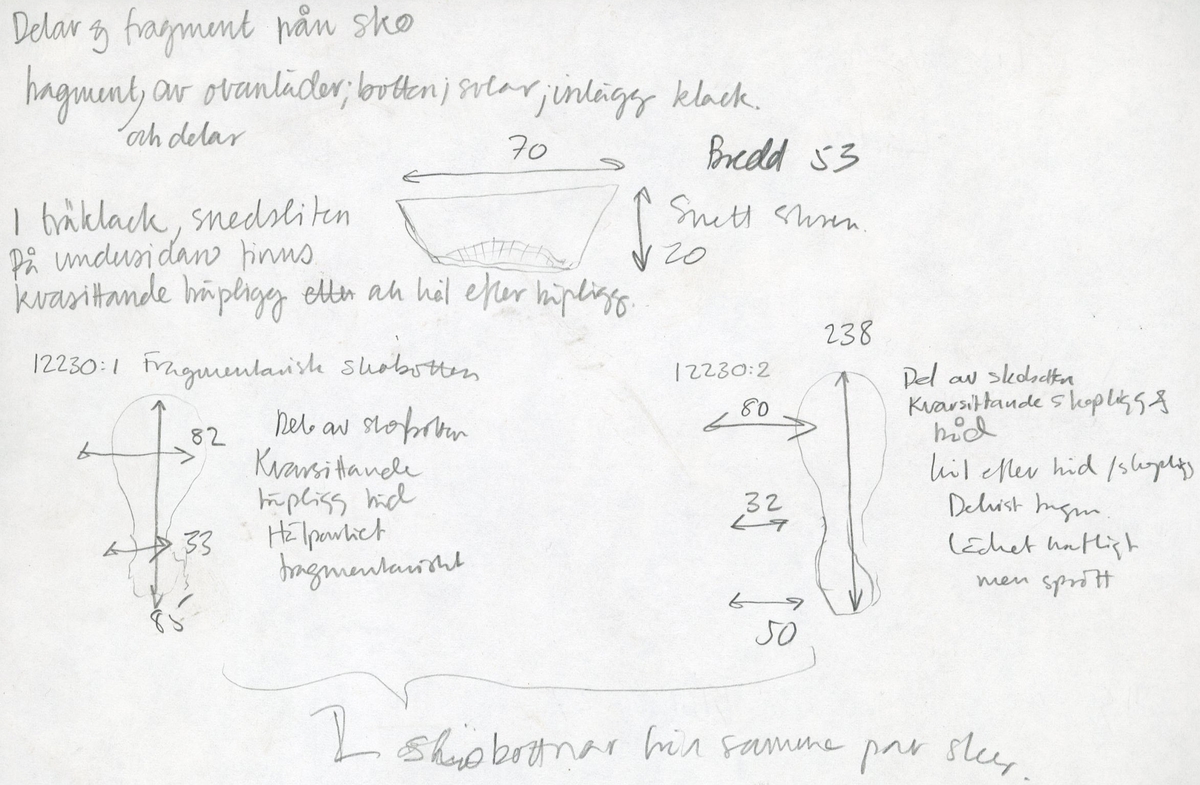 Delar & fragment från sko
fragment, av ovanläder; botten; sular; inlägg klack.
och delar
70
Bredd 53
1 träklack, snedsliten
Snett skuren.
20
På undersidan finns
kvasittande träpligg eller och hål efter träpligg.
238
12230:1 Fragmentarisk skobotten
12230:2
Del av skobotten
80
Kvarsittande skopligg &
82
Del av skobotten
tråd
Kvarsittande
hål efter tråd / skopligg
träpligg tråd
32
Delvist
33
Hälpartiet
Lädret kraftigt
fragmentariskt
men sprött
85
50
2 skobottnar från samma par skor.